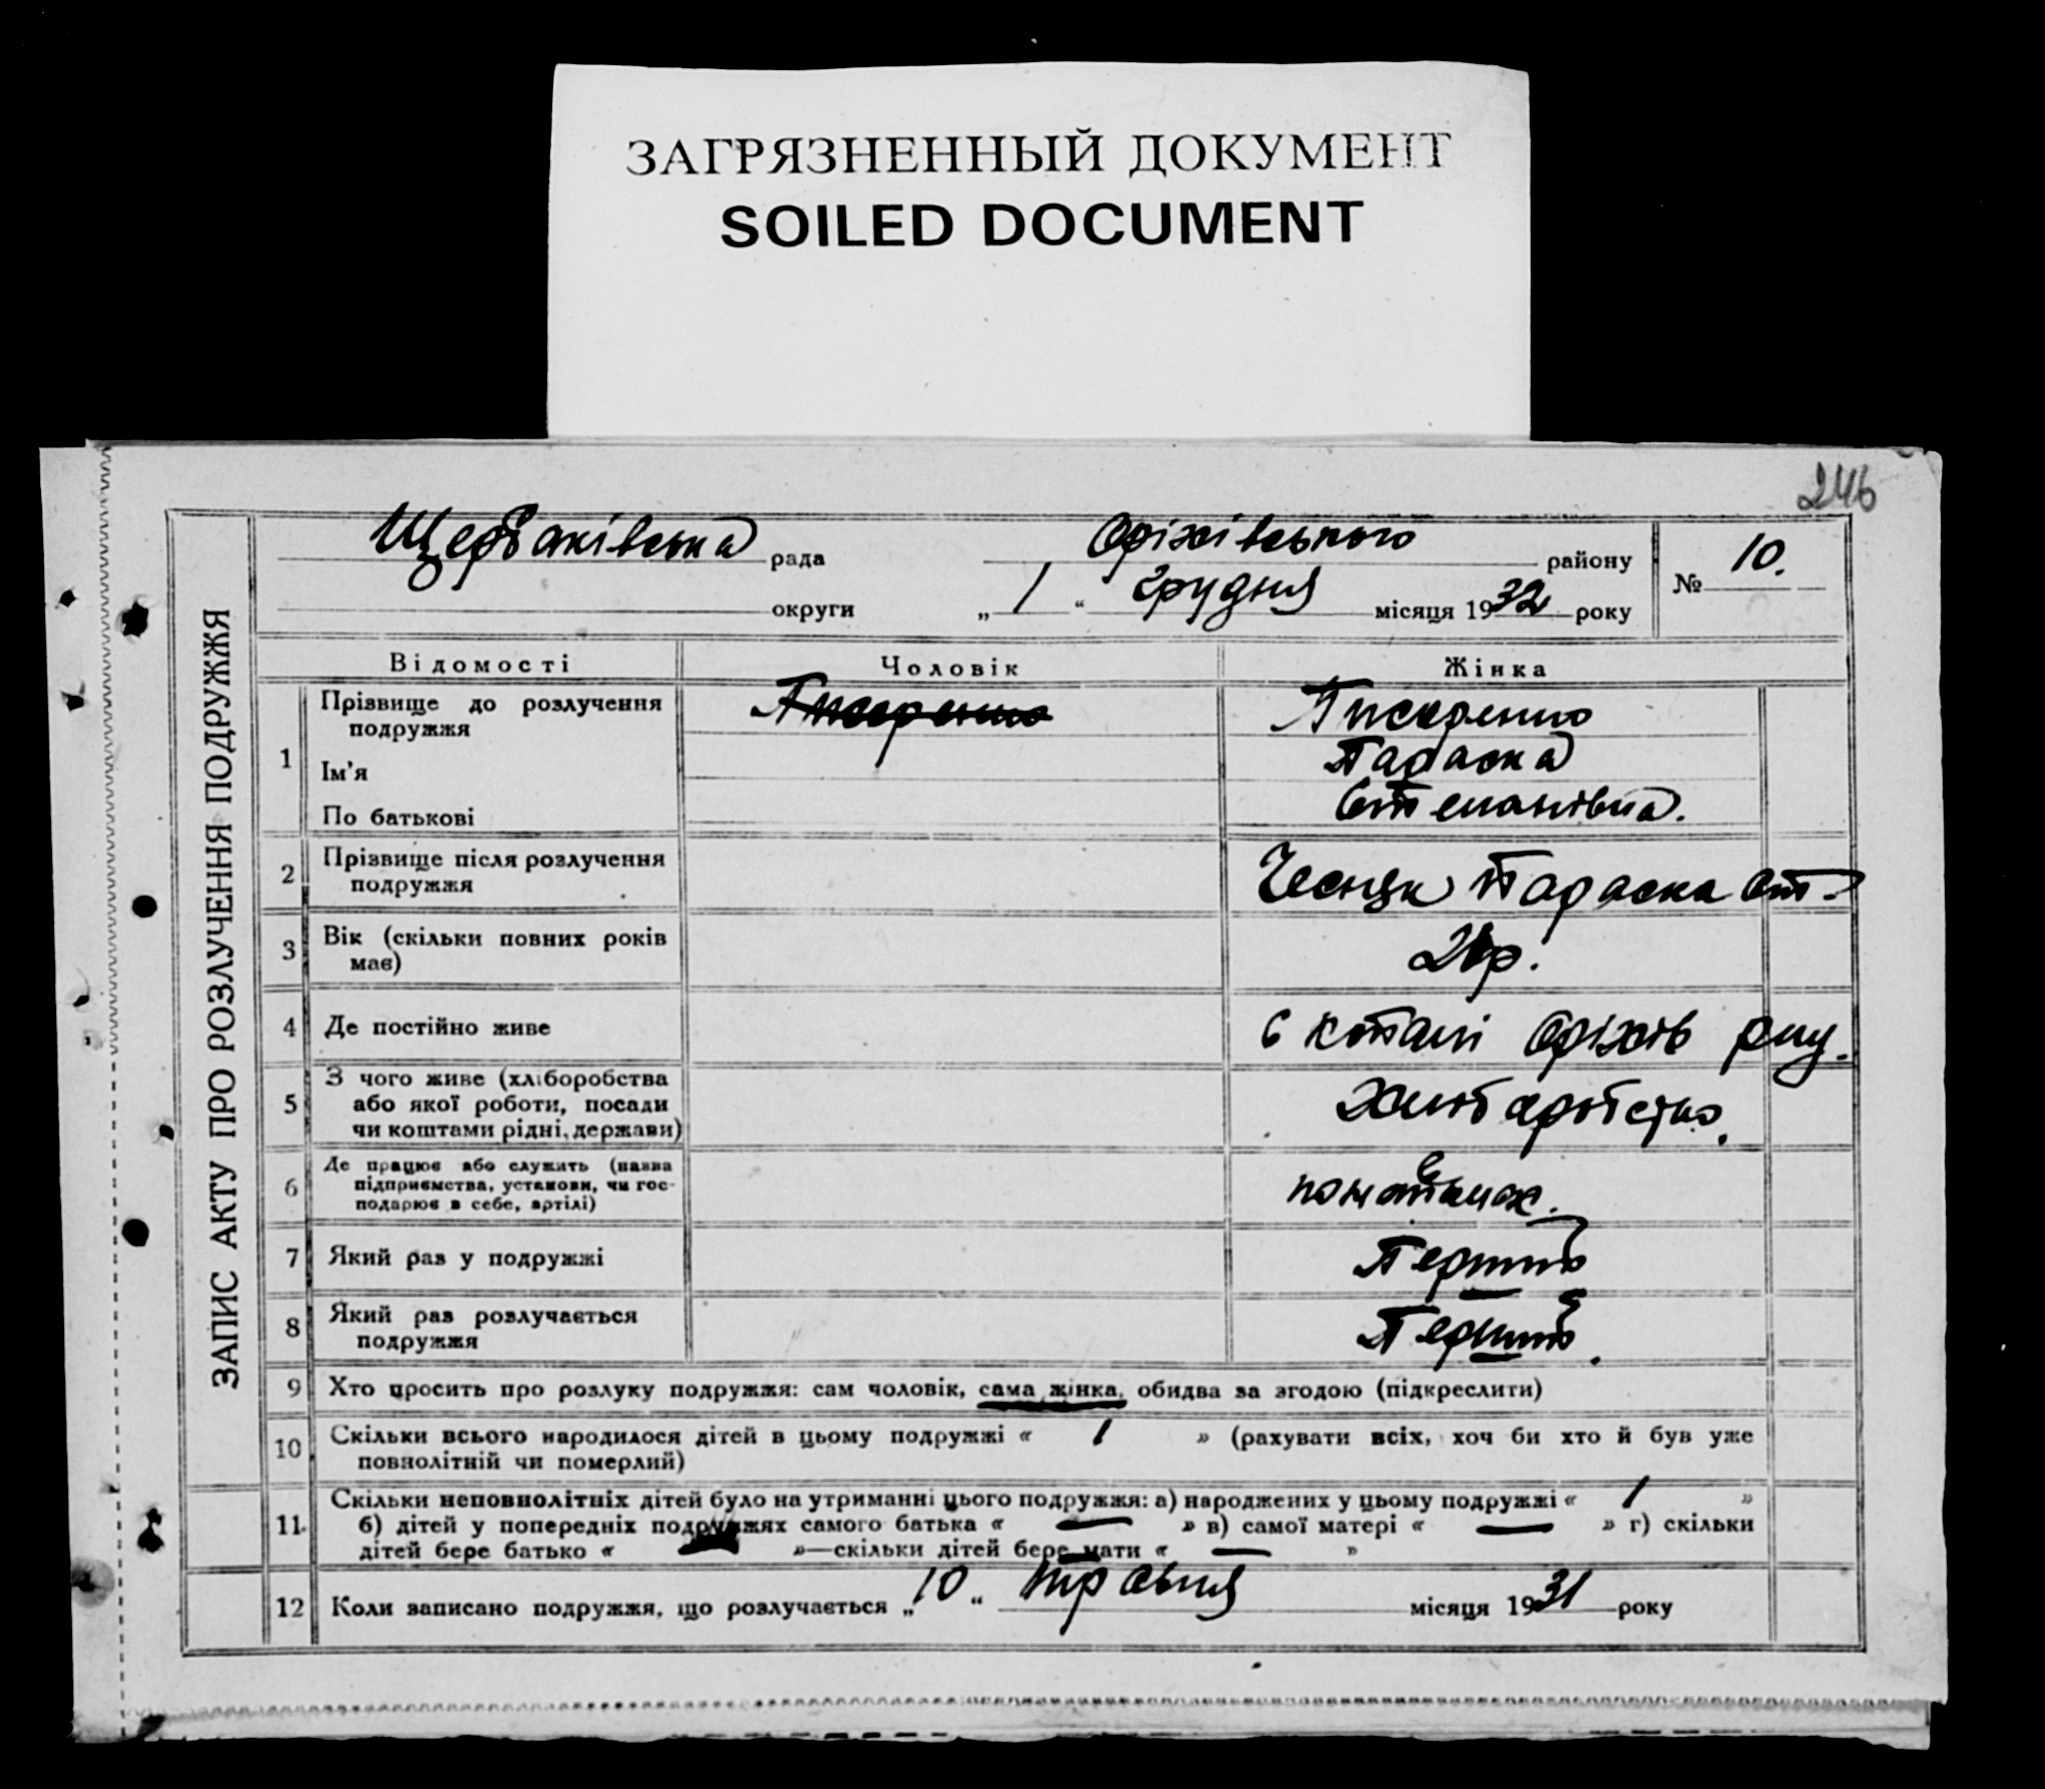 ЗАГРЯЗНЕННЫЙ ДОКУМЕНТ
SOILED DOCUMENT
246
ЗАПИС АКТУ ПРО РОЗЛУЧЕННЯ ПОДРУЖЖЯ
Щербаківська рада Оріхівського району № 10.
округи „1“ грудня місяця 1932 року
Відомості Чоловік Жінка
1 Прізвище до розлучення подружжя Писаренко Писаренко
Ім'я Параска
По батькові Степанівна.
2 Прізвище після розлучення
подружжя Параска Ст.
3 Вік (скільки повних років
має)
4 Де постійно живе с Копані Оріхів рну.
5 З чого живе (хліборобства
або якої роботи, посади
чи коштами рідні, держави)
6 Де працює або служить (назва
підприємства, установи, чи гос-
подарює в себе, артілі)
7 Який раз у подружжі Перший
8 Який раз розлучається
подружжя Перший.
9 Хто просить про розлуку подружжя: сам чоловік, сама жінка, обидва за згодою (підкреслити)
10 Скільки всього народилося дітей в цьому подружжі « 1 » (рахувати всіх, хоч би хто й був уже
повнолітній чи померлий)
11. Скільки неповнолітніх дітей було на утриманні цього подружжя: а) народжених у цьому подружжі « 1 »
б) дітей у попередніх подружжях самого батька « — » в) самої матері « — » г) скільки
дітей бере батько « »—скільки дітей бере мати « — »
12 Коли записано подружжя, що розлучається „10“ травня місяця 1931 року